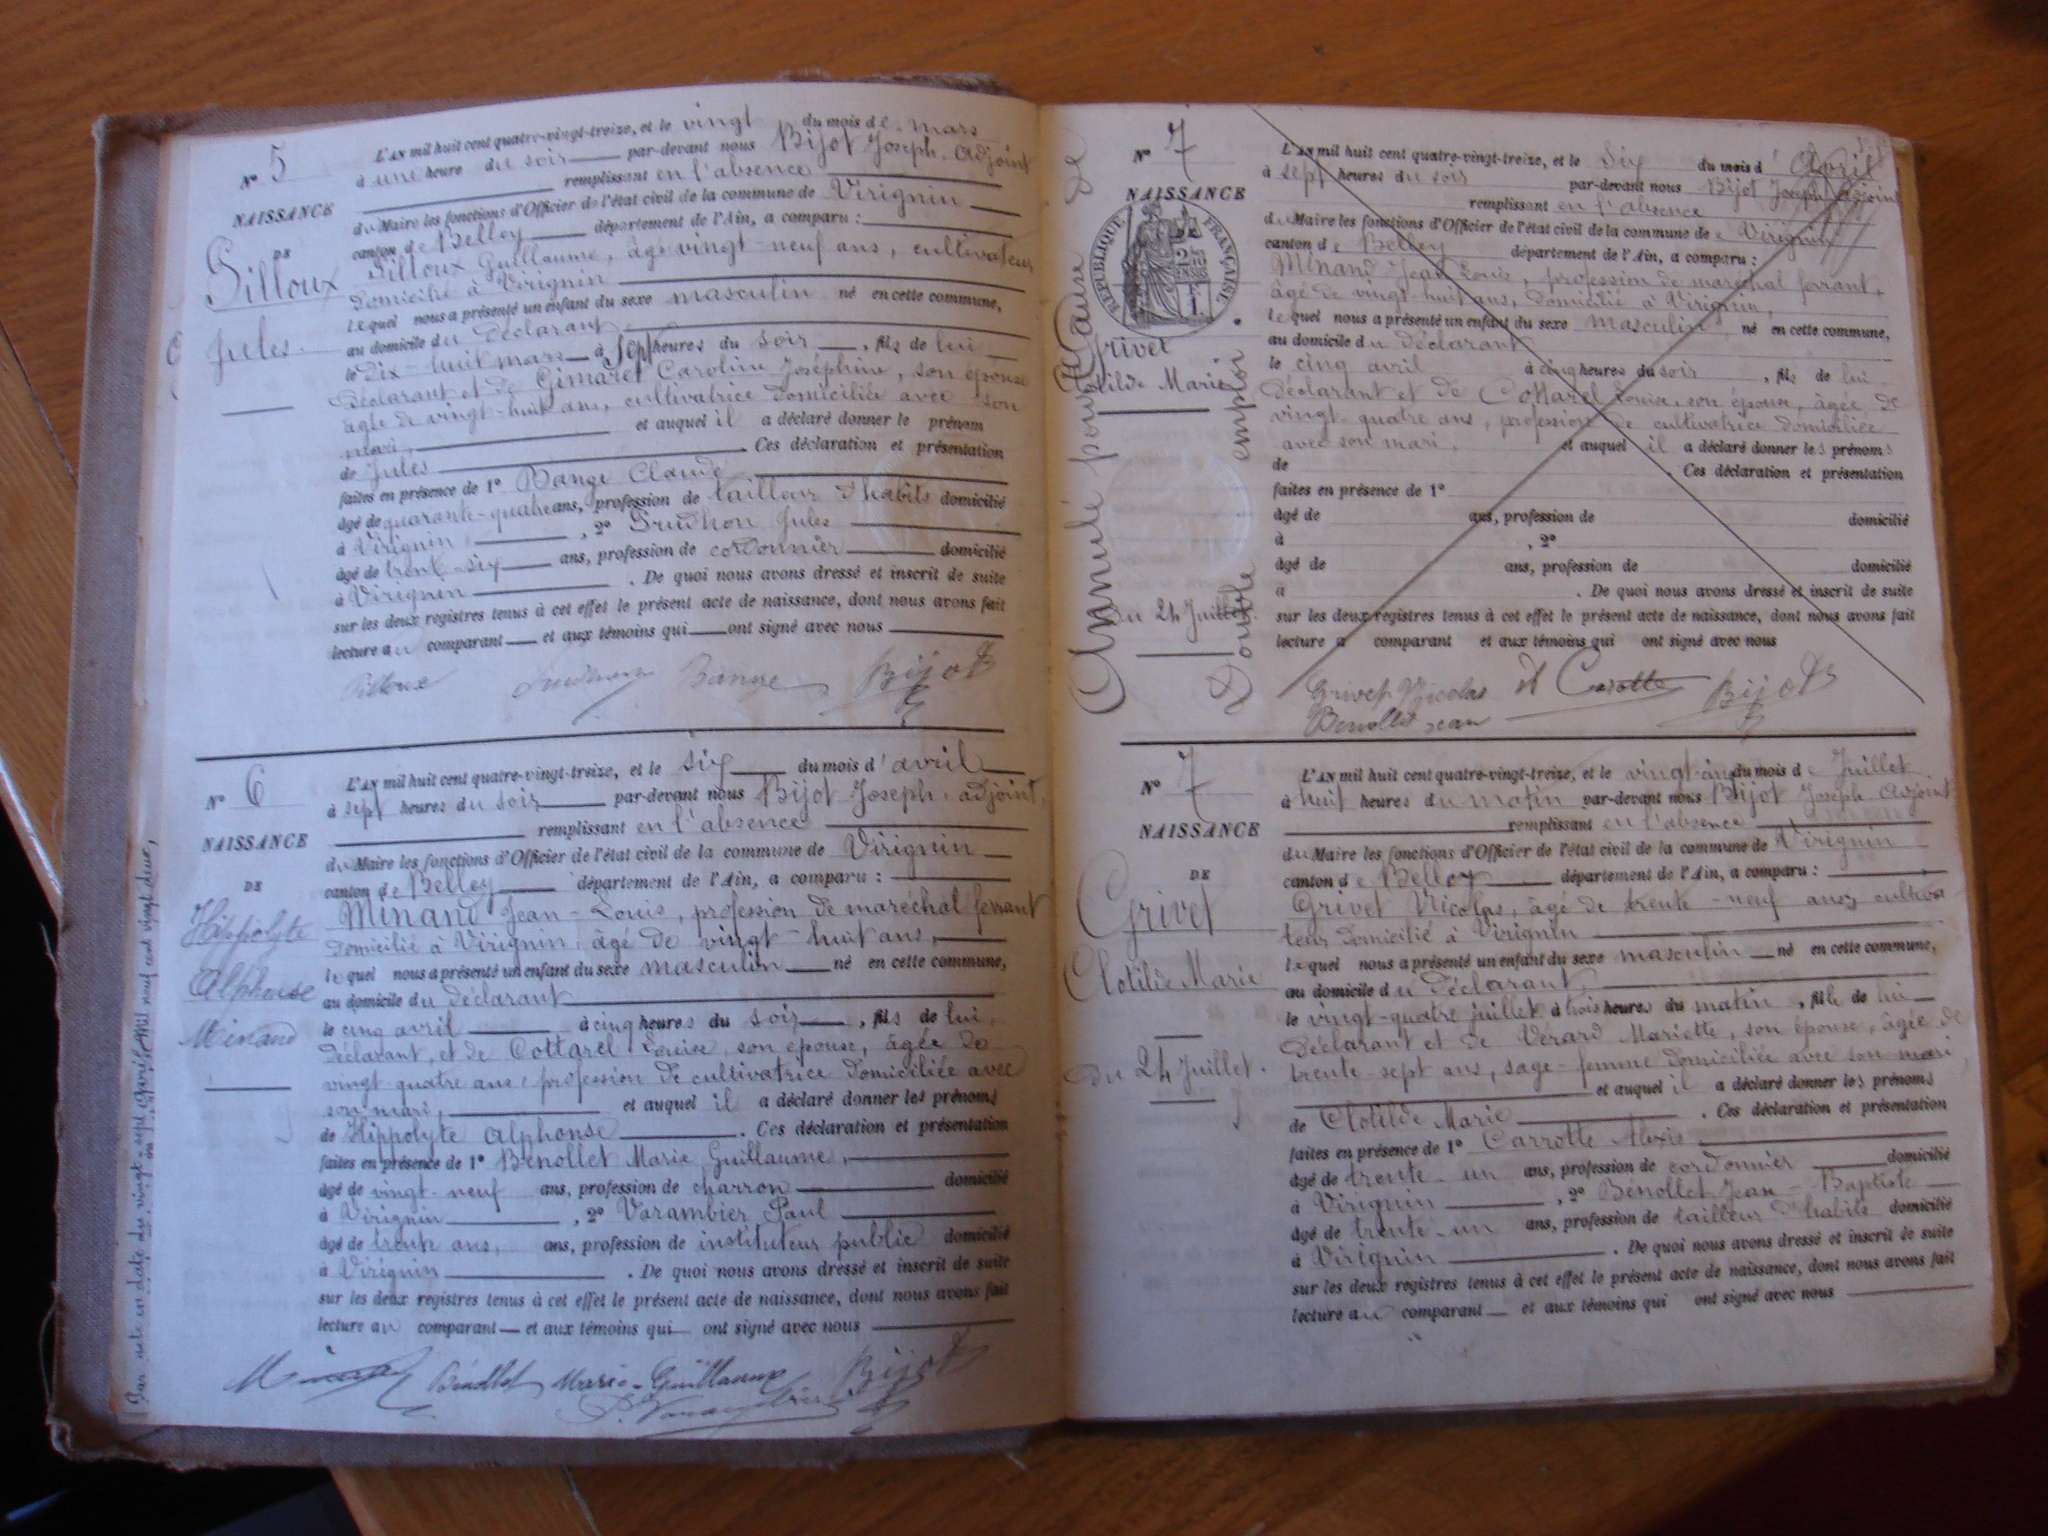 N° 5
NAISSANCE
DE
Pilloux
Jules.
L'AN mil huit cent quatre-vingt-treize, et le vingt du mois de mars
à une heure du soir par-devant nous Bijot Joseph, adjoint
remplissant en l'absence
du Maire les fonctions d'Officier de l'état civil de la commune de Virignin
canton de Belley département de l'Ain, a comparu :
Pilloux Guillaume, âgé vingt-neuf ans, cultivateur
domicilié à Virignin
lequel nous a présenté un enfant du sexe masculin né en cette commune,
au domicile du Déclarant
le dix-huit mars à sept heures du soir, fils de lui
Déclarant et de Gimaret Caroline Joséphine, son épouse
âgée de vingt-huit ans, cultivatrice domiciliée avec son
mari, et auquel il a déclaré donner le prénom
de Jules. Ces déclaration et présentation
faites en présence de 1° Bange Claude
âgé de quarante-quatre ans, profession de tailleur d'habits domicilié
à Virignin, 2° Prudhon Jules
âgé de trente-six ans, profession de cordonnier domicilié
à Virignin. De quoi nous avons dressé et inscrit de suite
sur les deux registres tenus à cet effet le présent acte de naissance, dont nous avons fait
lecture au comparant et aux témoins qui ont signé avec nous
Pilloux Prudhon Bange Bijot
N° 6
NAISSANCE
DE
Hippolyte
Alphonse
Minand
L'AN mil huit cent quatre-vingt-treize, et le six du mois d'avril
à sept heures du soir par-devant nous Bijot Joseph, adjoint,
remplissant en l'absence
du Maire les fonctions d'Officier de l'état civil de la commune de Virignin
canton de Belley département de l'Ain, a comparu :
Minand Jean-Louis, profession de maréchal ferrant
domicilié à Virignin, âgé de vingt-huit ans,
lequel nous a présenté un enfant du sexe masculin né en cette commune,
au domicile du déclarant
le cinq avril à cinq heures du soir, fils de lui,
Déclarant, et de Cottarel Louise, son épouse, âgée de
vingt-quatre ans, profession de cultivatrice domiciliée avec
son mari, et auquel il a déclaré donner les prénoms
de Hippolyte Alphonse. Ces déclaration et présentation
faites en présence de 1° Benollet Marie Guillaume,
âgé de vingt-neuf ans, profession de charron domicilié
à Virignin, 2° Varambier Paul
âgé de trente ans, ans, profession de instituteur public domicilié
à Virignin. De quoi nous avons dressé et inscrit de suite
sur les deux registres tenus à cet effet le présent acte de naissance, dont nous avons fait
lecture au comparant et aux témoins qui ont signé avec nous
Minand Bénollet Marie-Guillaume Bijot
P. Varambier
N° 7
NAISSANCE
RÉPUBLIQUE FRANÇAISE
Grivet
Clotilde Marie
Du 24 Juillet.
Annulé pour Cause de
Double emploi
L'AN mil huit cent quatre-vingt-treize, et le six du mois d'Avril
à sept heures du soir par-devant nous Bijot Joseph adjoint
remplissant en l'absence
du Maire les fonctions d'Officier de l'état civil de la commune de Virignin
canton de Belley département de l'Ain, a comparu :
Minand Jean Louis, profession de maréchal ferrant,
âgé de vingt-huit ans, domicilié à Virignin,
lequel nous a présenté un enfant du sexe masculin, né en cette commune,
au domicile du Déclarant
le cinq avril à cinq heures du soir, fils de lui,
Déclarant et de Cottarel Louise, son épouse, âgée de
vingt-quatre ans, profession de cultivatrice domiciliée
avec son mari, et auquel il a déclaré donner les prénoms
de . Ces déclaration et présentation
faites en présence de 1°
âgé de ans, profession de domicilié
à , 2°
âgé de ans, profession de domicilié
à . De quoi nous avons dressé et inscrit de suite
sur les deux registres tenus à cet effet le présent acte de naissance, dont nous avons fait
lecture a comparant et aux témoins qui ont signé avec nous
Grivet Nicolas A Carotte Bijot
Benollet Jean
N° 7
NAISSANCE
DE
Grivet
Clotilde Marie
Du 24 Juillet.
L'AN mil huit cent quatre-vingt-treize, et le vingt-cinq du mois de Juillet
à huit heures du matin par-devant nous Bijot Joseph adjoint
remplissant en l'absence
du Maire les fonctions d'Officier de l'état civil de la commune de Virignin
canton de Belley département de l'Ain, a comparu :
Grivet Nicolas, âgé de trente-neuf ans, cultiva
teur domicilié à Virignin
lequel nous a présenté un enfant du sexe masculin né en cette commune,
au domicile du Déclarant,
le vingt-quatre juillet à trois heures du matin, fille de lui
Déclarant et de Vérard Mariette, son épouse, âgée de
trente-sept ans, sage-femme domiciliée avec son mari,
et auquel il a déclaré donner les prénoms
de Clotilde Marie. Ces déclaration et présentation
faites en présence de 1° Carrotte Alexis
âgé de trente-un ans, profession de cordonnier domicilié
à Virignin, 2° Bénollet Jean-Baptiste
âgé de trente-un ans, profession de tailleur d'habits domicilié
à Virignin. De quoi nous avons dressé et inscrit de suite
sur les deux registres tenus à cet effet le présent acte de naissance, dont nous avons fait
lecture au comparant et aux témoins qui ont signé avec nous
Par acte en date du vingt-sept Avril mil neuf cent vingt deux,